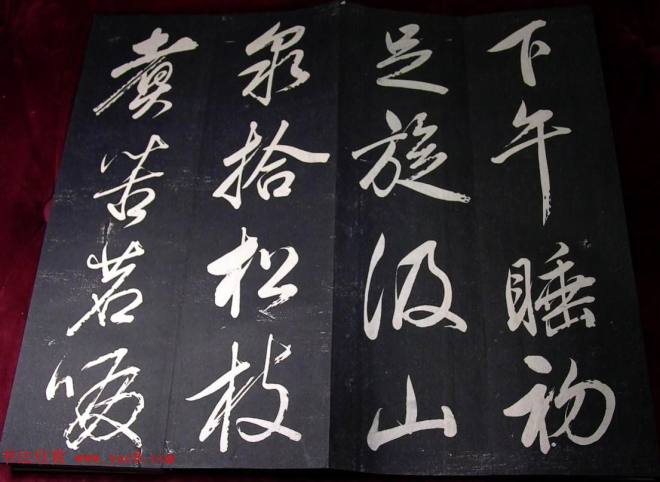 下午睡初
足旋汲山
泉拾松枝
煮苦茗啜
书法欣赏 www.yac8.com